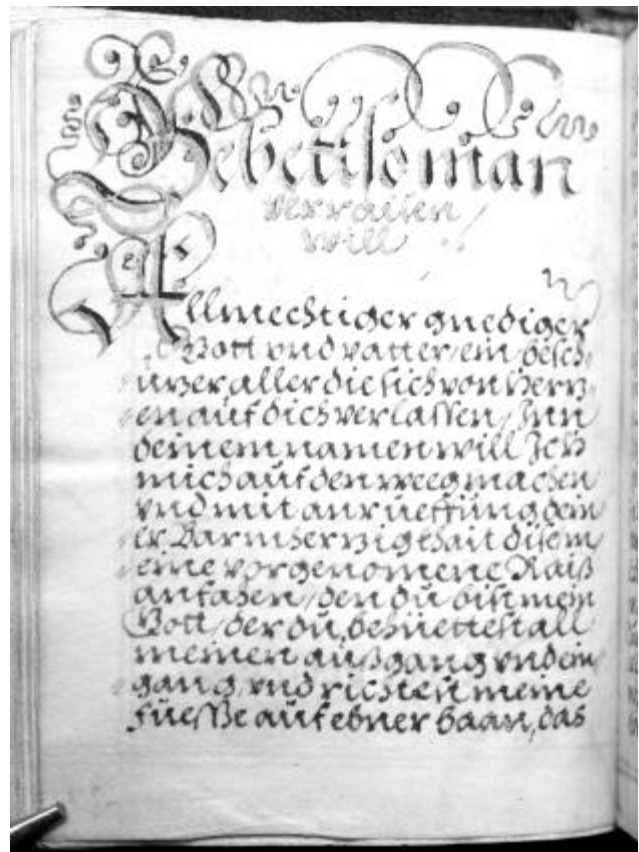 Gebett so man
verraisen
will
Allmechtiger gnediger
Gott vnd vatter, ein besch-
uzer aller die sich von Herz-
en auf dich verlassen, Inn
deinem namen will Ich
mich auf den weeg machen
vnd mit anrueffung dein-
er Barmherzigkhait dise m-
eine vorgenomene Raiß
anfahen, den du bist mein
Gott, der du behüettest all
meinen außgang vnd ein-
gang, vnd richtest meine
füesse auf ebner baan, das